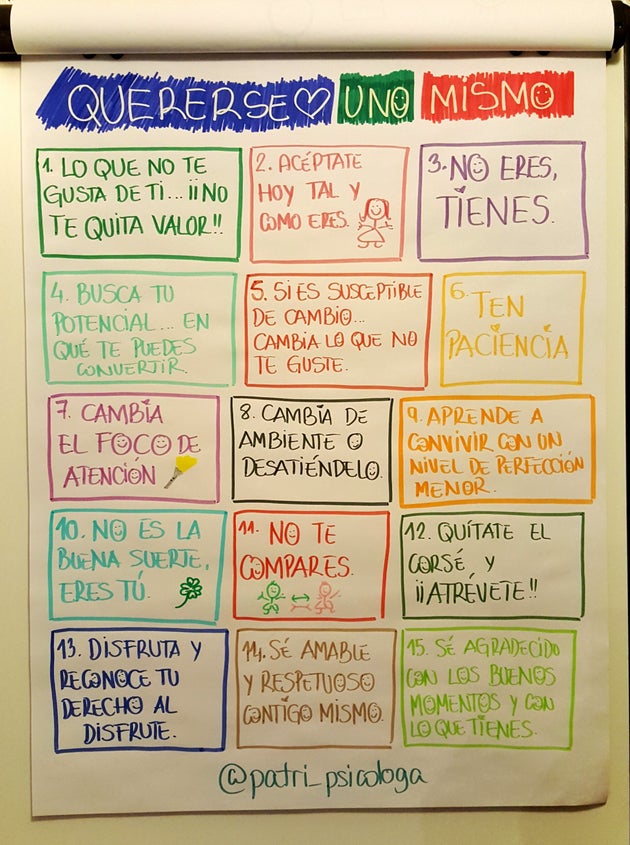 QUERERSE♡ UNO MISMO
1. LO QUE NO TE
GUSTA DE TI... ¡¡NO
TE QUITA VALOR!!
2. ACÉPTATE
HOY TAL Y
COMO ERES.
3. NO ERES,
TIENES.
4. BUSCA TU
POTENCIAL... EN
QUÉ TE PUEDES
CONVERTIR.
5. SI ES SUSCEPTIBLE
DE CAMBIO...
CAMBIA LO QUE NO
TE GUSTE.
6. TEN
PACIENCIA
7. CAMBIA
EL FOCO DE
ATENCIÓN
8. CAMBIA DE
AMBIENTE O
DESATIÉNDELO.
9. APRENDE A
CONVIVIR CON UN
NIVEL DE PERFECCIÓN
MENOR.
10. NO ES LA
BUENA SUERTE,
ERES TÚ.
11. NO TE
COMPARES.
12. QUÍTATE EL
CORSÉ, Y
¡¡ATRÉVETE!!
13. DISFRUTA Y
RECONOCE TU
DERECHO AL
DISFRUTE.
14. SÉ AMABLE
Y RESPETUOSO
CONTIGO MISMO.
15. SÉ AGRADECIDO
CON LOS BUENOS
MOMENTOS Y CON
LO QUE TIENES.
@patri_psicologa